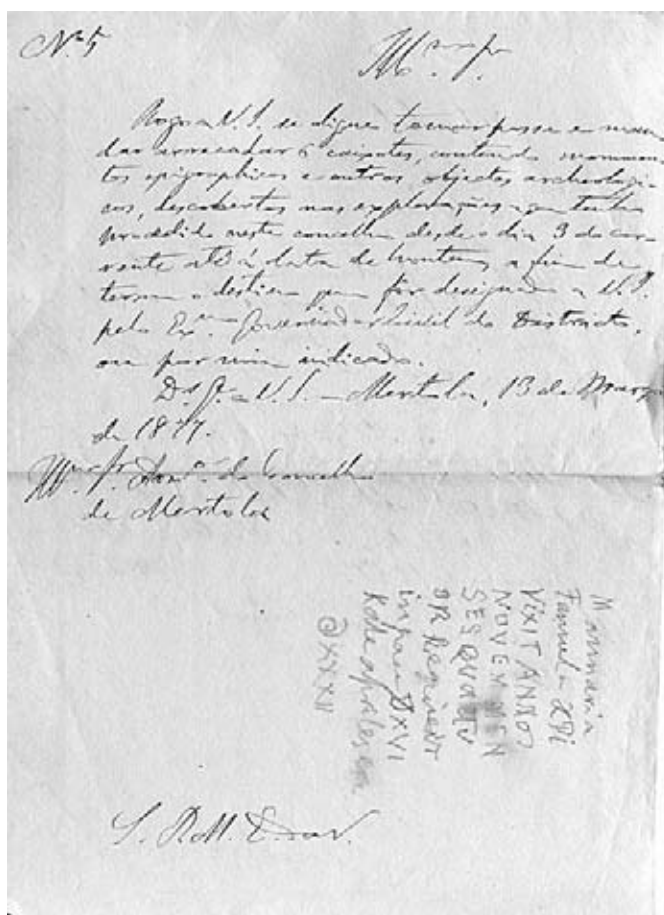 Nº 5
Illmo. Sr.
Rogo a V. S. se digne tomar posse e man
dar arrecadar 6 caixotes, contendo monumen
tos epigraphicos e outros objectos archeologi
cos, descobertos nas explorações a que tenho
procedido neste concelho desde o dia 3 do cor
rente até á data de hontem, a fim de
terem o destino que fôr designado a V. S.
pelo Exmo. Governador Civil do Districto,
ou por mim indicado.
Ds. Ge. a V. S. Mertola, 13 de Março
de 1877.
Illmo. Sr. Admor. do Concelho
de Mertola
Famula DI
VIXIT ANNOS
NOVEM MEN
SES QUATTU
OR Requievit
in pace D XVI
Kal
@ XXXII